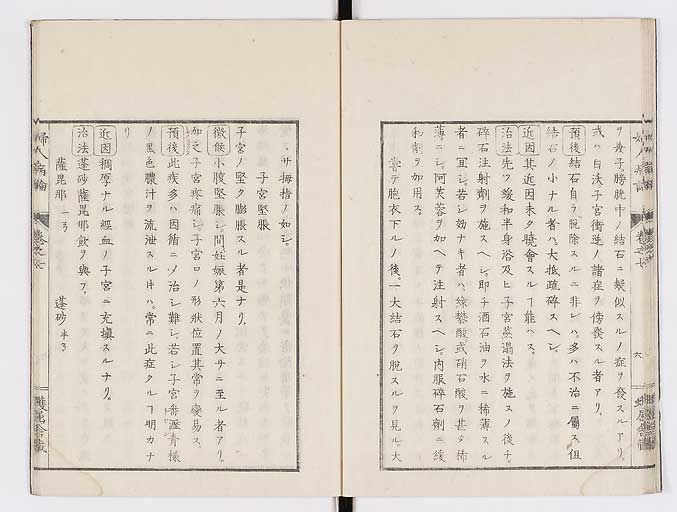 ヲ發子膀胱中ノ結石ニ疑似スルノ症ヲ發スルアリ。
或ハ白沃子宮衝逆ノ諸症ヲ傍發スル者アリ。
預後結石自ラ脫除スルニ非レハ。多ハ不治ニ屬ス但
結石ノ小ナル者ハ。大抵疏碎スヘシ
近因其近因未タ曉會スルヿ能ハス。
治法先ツ緩和半身浴及ヒ子宮蒸溻法ヲ施スノ後チ。
碎石注射劑ヲ施スヘシ。即チ酒石油ヲ水ニ稀薄スル
者ニ宜シ。若シ効ナキ者ハ。綠礬酸或硝石酸ヲ甚タ稀
薄ニシ。阿芙蓉ヲ加ヘテ注射スヘシ。內服碎石劑ニ緩
和劑ヲ加用ス。
嘗テ胞衣下ルノ後。一大結石ヲ脫スルヲ見ル。大
サ拇指ノ如シ。
子宮堅脹
子宮ノ堅ク膨脹スル者是ナリ。
徵候小腹堅脹シ。間妊娠第六月ノ大サニ至ル者アリ。
加之子宮疼痛シ。子宮口ノ形狀位置其常ヲ變易ス。
預後此疾多ハ因循ニメ治シ難シ。若シ子宮
ノ黑色膿汁ヲ流泄スルキハ。常ニ此症タルヿ明カナ
リ
近因稠厚ナル經血ノ子宮ニ充塡スルナリ。
治法蓬砂薩毘那飲ヲ與フ。
薩毘那 蓬砂
婦人病論
卷之七
六